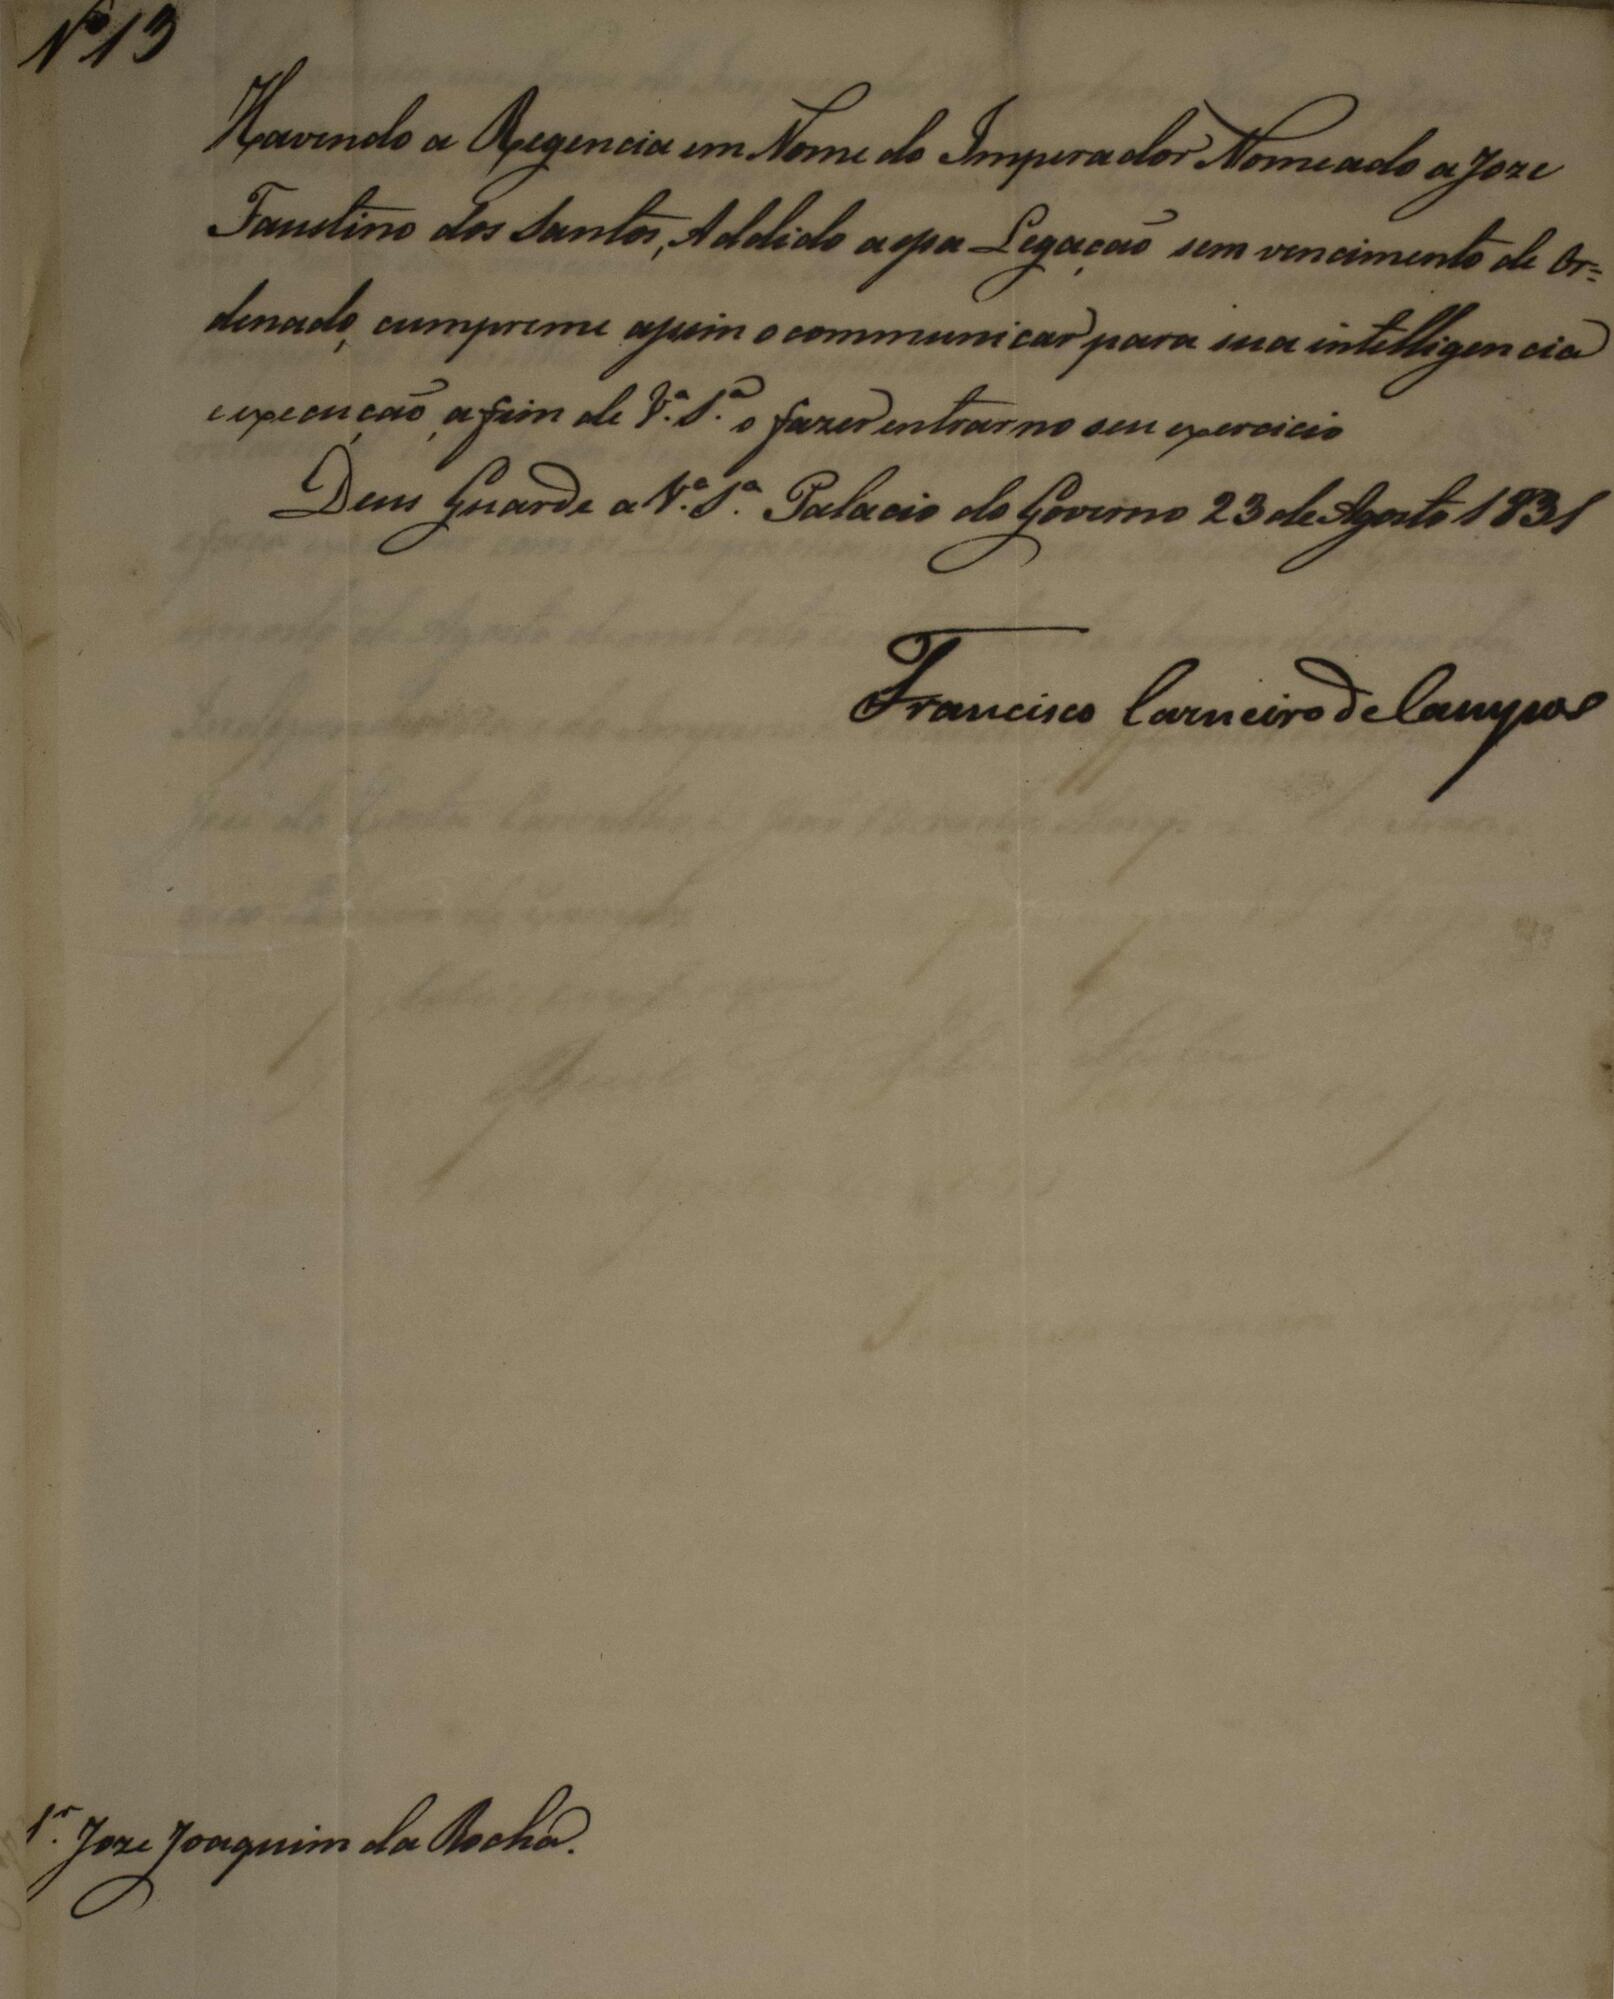 Nº 13
Havendo a Regencia em Nome do Imperador Nomeado a Joze
Faustino dos Santos, Addido a essa Legação sem vencimento de Or=
denado, cumpreme assim o communicar para sua intelligencia
e execução, a fim de V.ª S.ª o fazer entrar no seu exercicio
Deus Guarde a V.ª S.ª Palacio do Governo 23 de Agosto 1831
Francisco Carneiro de Campos
Sr. Joze Joaquim da Rocha.